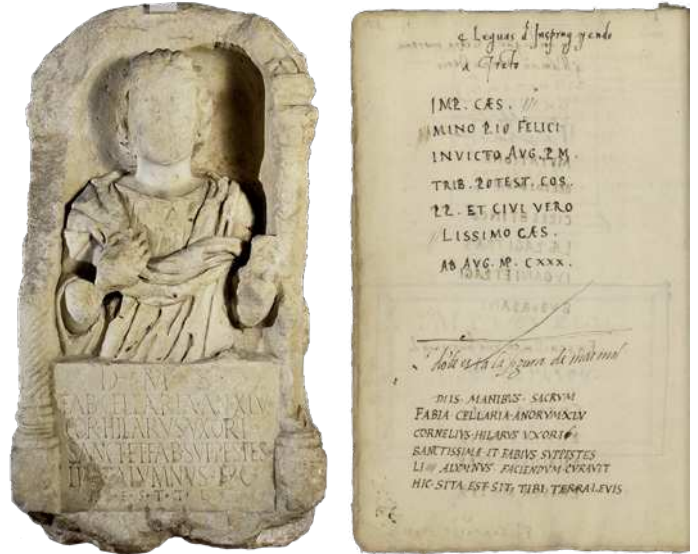 D · M · S ·
FAB CELLARIA · AN · XLV
COR · HILARVS VXORI
SANCT · ET FAB SVPESTES
ALVMNVS · F · C
· E · S · T · T · L
Leguas d Insprug yendo
a Greto
IMP. CÆS.
MINO PIO FELICI
INVICTO AVG. P.M.
TRIB. POTEST. COS.
PP. ET CIVI VERO
LISSIMO CÆS.
AB AVG. MP. CXXX.
la figura de marmol
DIIS · MANIBVS · SACRVM
FABIA CELLARIA · ANORVM XLV
CORNELIVS · HILARVS VXORI
SANCTISSIMÆ · IT FABIVS SVPESTES
LI ALVMNVS FACIENDVM CVRAVIT
HIC · SITA EST · SIT · TIBI TERRA LEVIS